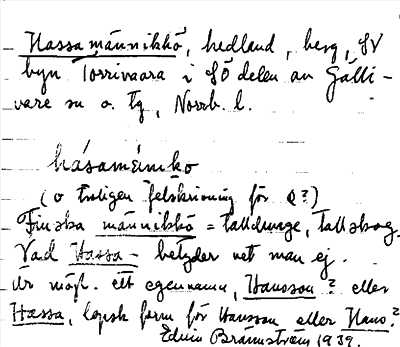 Hassa männikkö, hedland, berg, SV
byn Torrivaara i SÖ delen av Gälli-
vare sn o. tg, Norrb. l.
hásamæiniko
(o troligen felskrivning för ö?)
Finska männikkö = talldunge, tallskog.
Vad Hassa- betyder vet man ej.
Är möjl. ett egennamn, Hansson? eller
Hassa, lapsk form för Hansson eller Hans?
Edvin Brännström 1939.